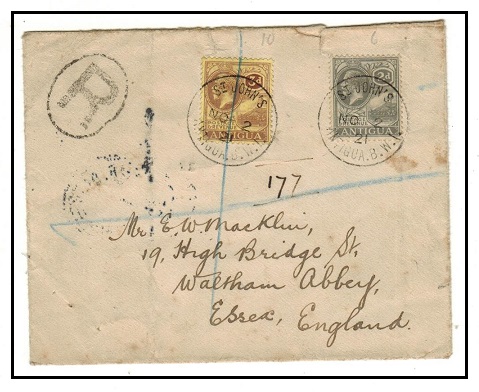 10
6
R
ST. JOHN'S
NO 2
ANTIGUA. B. W. I.
ANTIGUA
ST. JOHN'S
2d
NO 2
21
ANTIGUA. B. W. I.
ANTIGUA
177
Mr. E. W. Macklin,
19, High Bridge St,
Waltham Abbey,
Essex, England.